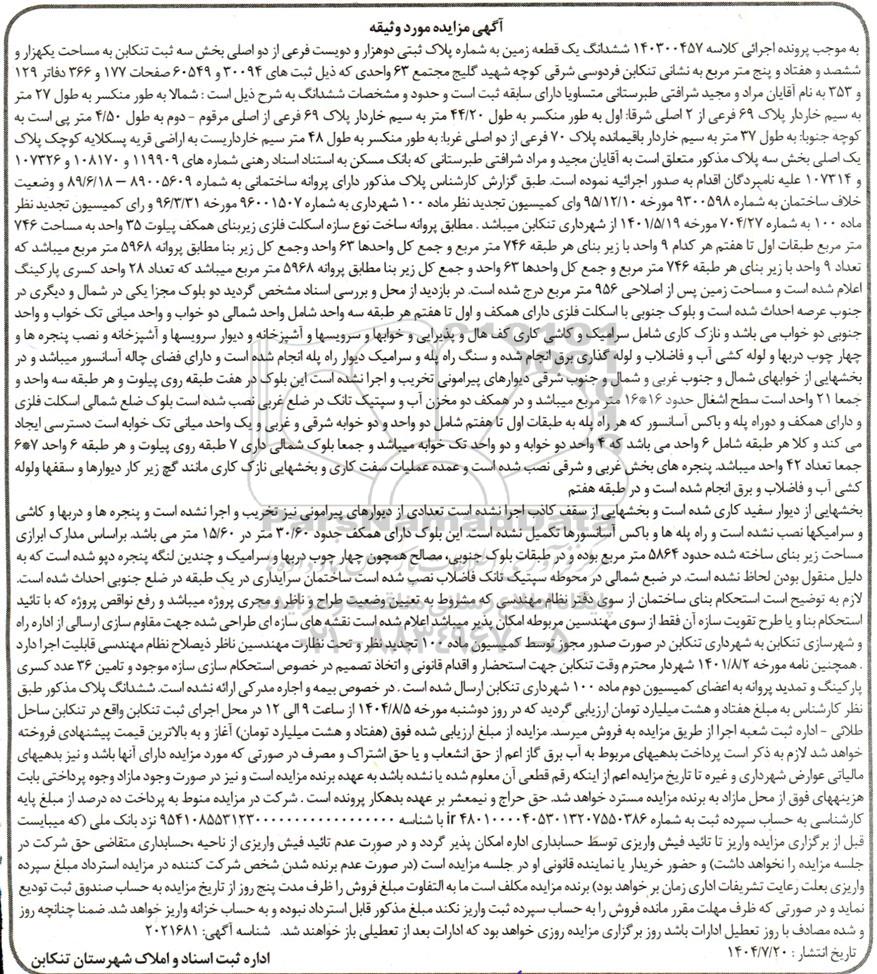 آگهی مزایده مورد وثیقه
به موجب پرونده اجرائی کلاسه ۱۴۰۳۰۰۴۵۷ ششدانگ یک قطعه زمین به شماره پلاک ثبتی دوهزار و دویست فرعی از دو اصلی بخش سه ثبت تنکابن به مساحت یکهزار و
ششصد و هفتاد و پنج متر مربع به نشانی تنکابن فردوسی شرقی کوچه شهید گلیج مجتمع ۶۳ واحدی که ذیل ثبت های ۳۰۰۹۴ و ۶۰۵۴۹ صفحات ۱۷۷ و ۳۶۶ دفاتر ۱۲۹
و ۳۵۳ به نام آقایان مراد و مجید شرافتی طبرستانی متساویا دارای سابقه ثبت است و حدود و مشخصات ششدانگ به شرح ذیل است : شمالا به طور منکسر به طول ۲۷ متر
به سیم خاردار پلاک ۶۹ فرعی از ۲ اصلی شرقا: اول به طور منکسر به طول ۴۴/۲۰ متر به سیم خاردار پلاک ۶۹ فرعی از اصلی مرقوم - دوم به طول ۴/۵۰ متر پی است به
کوچه جنوبا: به طول ۳۷ متر به سیم خاردار باقیمانده پلاک ۷۰ فرعی از دو اصلی غربا: به طور منکسر به طول ۴۸ متر سیم خارداریست به اراضی قریه پسکلایه کوچک پلاک
یک اصلی بخش سه پلاک مذکور متعلق است به آقایان مجید و مراد شرافتی طبرستانی که بانک مسکن به استناد اسناد رهنی شماره های ۱۱۹۹۰۹ و ۱۰۸۱۷۰ و ۱۰۷۳۲۶
و ۱۰۷۳۱۴ علیه نامبردگان اقدام به صدور اجرائیه نموده است. طبق گزارش کارشناس پلاک مذکور دارای پروانه ساختمانی به شماره ۸۹۰۰۵۶۰۹ – ۸۹/۶/۱۸ و وضعیت
خلاف ساختمان به شماره ۹۳۰۰۵۹۸ مورخه ۹۵/۱۲/۱۰ وای کمیسیون تجدید نظر ماده ۱۰۰ شهرداری به شماره ۹۶۰۰۱۵۰۷ مورخه ۹۶/۳/۳۱ و رای کمیسیون تجدید نظر
ماده ۱۰۰ به شماره ۷۰۴/۲۷ مورخه ۱۴۰۱/۵/۱۹ از شهرداری تنکابن میباشد . مطابق پروانه ساخت نوع سازه اسکلت فلزی زیربنای همکف پیلوت ۳۵ واحد به مساحت ۷۴۶
متر مربع طبقات اول تا هفتم هر کدام ۹ واحد با زیر بنای هر طبقه ۷۴۶ متر مربع و جمع کل واحدها ۶۳ واحد وجمع کل زیر بنا مطابق پروانه ۵۹۶۸ متر مربع میباشد که
تعداد ۹ واحد با زیر بنای هر طبقه ۷۴۶ متر مربع و جمع کل واحدها ۶۳ واحد و جمع کل زیر بنا مطابق پروانه ۵۹۶۸ متر مربع میباشد که تعداد ۲۸ واحد کسری پارکینگ
اعلام شده است و مساحت زمین پس از اصلاحی ۹۵۶ متر مربع درج شده است. در بازدید از محل و بررسی اسناد مشخص گردید دو بلوک مجزا یکی در شمال و دیگری در
جنوب عرصه احداث شده است و بلوک جنوبی با اسکلت فلزی دارای همکف و اول تا هفتم هر طبقه سه واحد شامل واحد شمالی دو خواب و واحد میانی تک خواب و واحد
جنوبی دو خواب می باشد و نازک کاری شامل سرامیک و کاشی کاری کف هال و پذیرایی و خوابها و سرویسها و آشپزخانه و دیوار سرویسها و آشپزخانه و نصب پنجره ها و
چهار چوب دربها و لوله کشی آب و فاضلاب و لوله گذاری برق انجام شده و سنگ راه پله و سرامیک دیوار راه پله انجام شده است و دارای فضای چاله آسانسور میباشد و در
بخشهایی از خوابهای شمال و جنوب غربی و شمال و جنوب شرقی دیوارهای پیرامونی تخریب و اجرا نشده است این بلوک در هفت طبقه روی پیلوت و هر طبقه سه واحد و
جمعا ۲۱ واحد است سطح اشغال حدود ۱۶*۱۶ متر مربع میباشد و در همکف دو مخزن آب و سپتیک تانک در ضلع غربی نصب شده است بلوک ضلع شمالی اسکلت فلزی
و دارای همکف و دوراه پله و باکس آسانسور که هر راه پله به طبقات اول تا هفتم شامل دو واحد و دو خوابه شرقی و غربی و یک واحد میانی تک خوابه است دسترسی ایجاد
می کند و کلا هر طبقه شامل ۶ واحد می باشد که ۴ واحد دو خوابه و دو واحد تک خوابه میباشد و جمعا بلوک شمالی داری ۷ طبقه روی پیلوت و هر طبقه ۶ واحد ۷*۶
جمعا تعداد ۴۲ واحد میباشد. پنجره های بخش غربی و شرقی نصب شده است و عمده عملیات سفت کاری و بخشهایی نازک کاری مانند گچ زیر کار دیوارها و سقفها ولوله
کشی آب و فاضلاب و برق انجام شده است و در طبقه هفتم
بخشهایی از دیوار سفید کاری شده است و بخشهایی از سقف کاذب اجرا نشده است تعدادی از دیوارهای پیرامونی نیز تخریب و اجرا نشده است و پنجره ها و دربها و کاشی
و سرامیکها نصب نشده است و راه پله ها و باکس آسانسورها تکمیل نشده است. این بلوک دارای همکف حدود ۳۰/۶۰ متر در ۱۵/۶۰ متر می باشد. براساس مدارک ابرازی
مساحت زیر بنای ساخته شده حدود ۵۸۶۴ متر مربع بوده و در طبقات بلوک جنوبی ، مصالح همچون چهار چوب دربها و سرامیک و چندین لنگه پنجره دپو شده است که به
دلیل منقول بودن لحاظ نشده است. در ضبع شمالی در محوطه سپتیک تانک فاضلاب نصب شده است ساختمان سرایداری در یک طبقه در ضلع جنوبی احداث شده است.
لازم به توضیح است استحکام بنای ساختمان از سوی دفتر نظام مهندسی که مشروط به تعیین وضعیت طراح و ناظر و مجری پروژه میباشد و رفع نواقص پروژه که با تائید
استحکام بنا و یا طرح تقویت سازه آن فقط از سوی مهندسین مربوطه امکان پذیر میباشد اعلام شده است نقشه های سازه ای طراحی شده جهت مقاوم سازی ارسالی از اداره راه
و شهرسازی تنکابن به شهرداری تنکابن در صورت صدور مجوز توسط کمیسیون ماده ۱۰۰ تجدید نظر و تحت نظارت مهندسین ناظر ذیصلاح نظام مهندسی قابلیت اجرا دارد
. همچنین نامه مورخه ۱۴۰۱/۸/۲ شهردار محترم وقت تنکابن جهت استحضار و اقدام قانونی و اتخاذ تصمیم در خصوص استحکام سازی سازه موجود و تامین ۳۶ عدد کسری
پارکینگ و تمدید پروانه به اعضای کمیسیون دوم ماده ۱۰۰ شهرداری تنکابن ارسال شده است . در خصوص بیمه و اجاره مدرکی ارائه نشده است. ششدانگ پلاک مذکور طبق
نظر کارشناس به مبلغ هفتاد و هشت میلیارد تومان ارزیابی گردید که در روز دوشنبه مورخه ۱۴۰۴/۸/۵ از ساعت ۹ الی ۱۲ در محل اجرای ثبت تنکابن واقع در تنکابن ساحل
طلائی - اداره ثبت شعبه اجرا از طریق مزایده به فروش میرسد. مزایده از مبلغ ارزیابی شده فوق (هفتاد و هشت میلیارد تومان) آغاز و به بالاترین قیمت پیشنهادی فروخته
خواهد شد لازم به ذکر است پرداخت بدهیهای مربوط به آب برق گاز اعم از حق انشعاب و یا حق اشتراک و مصرف در صورتی که مورد مزایده دارای آنها باشد و نیز بدهیهای
مالیاتی عوارض شهرداری و غیره تا تاریخ مزایده اعم از اینکه رقم قطعی آن معلوم شده یا نشده باشد به عهده برنده مزایده است و نیز در صورت وجود مازاد وجوه پرداختی بابت
هزینههای فوق از محل مازاد به برنده مزایده مسترد خواهد شد. حق حراج و نیمعشر بر عهده بدهکار پرونده است . شرکت در مزایده منوط به پرداخت ده درصد از مبلغ پایه
کارشناسی به حساب سپرده ثبت به شماره ir ۴۸۰۱۰۰۰۰۴۰۵۳۰۱۳۲۰۷۵۵۰۳۸۶ با شناسه نزد بانک ملی (که میبایست
قبل از برگزاری مزایده واریز تا تائید فیش واریزی توسط حسابداری اداره امکان پذیر گردد و در صورت عدم تائید فیش واریزی از ناحیه ،حسابداری متقاضی حق شرکت در
جلسه مزایده را نخواهد داشت) و حضور خریدار یا نماینده قانونی او در جلسه مزایده است (در صورت عدم برنده شدن شخص شرکت کننده در مزایده استرداد مبلغ سپرده
واریزی بعلت رعایت تشریفات اداری زمان بر خواهد بود) برنده مزایده مکلف است ما به التفاوت مبلغ فروش را ظرف مدت پنج روز از تاریخ مزایده به حساب صندوق ثبت تودیع
نماید و در صورتی که ظرف مهلت مقرر مانده فروش را به حساب سپرده ثبت واریز نکند مبلغ مذکور قابل استرداد نبوده و به حساب خزانه واریز خواهد شد. ضمنا چنانچه روز
و شده مصادف با روز تعطیل ادارات باشد روز برگزاری مزایده روزی خواهد بود که ادارات بعد از تعطیلی باز خواهند شد. شناسه آگهی: ۲۰۲۱۶۸۱
تاریخ انتشار : ۱۴۰۴/۷/۲۰
اداره ثبت اسناد و املاک شهرستان تنکابن
ParsNamadData
۰۲۱-۸۸۳۴۹۶۷۰-۵